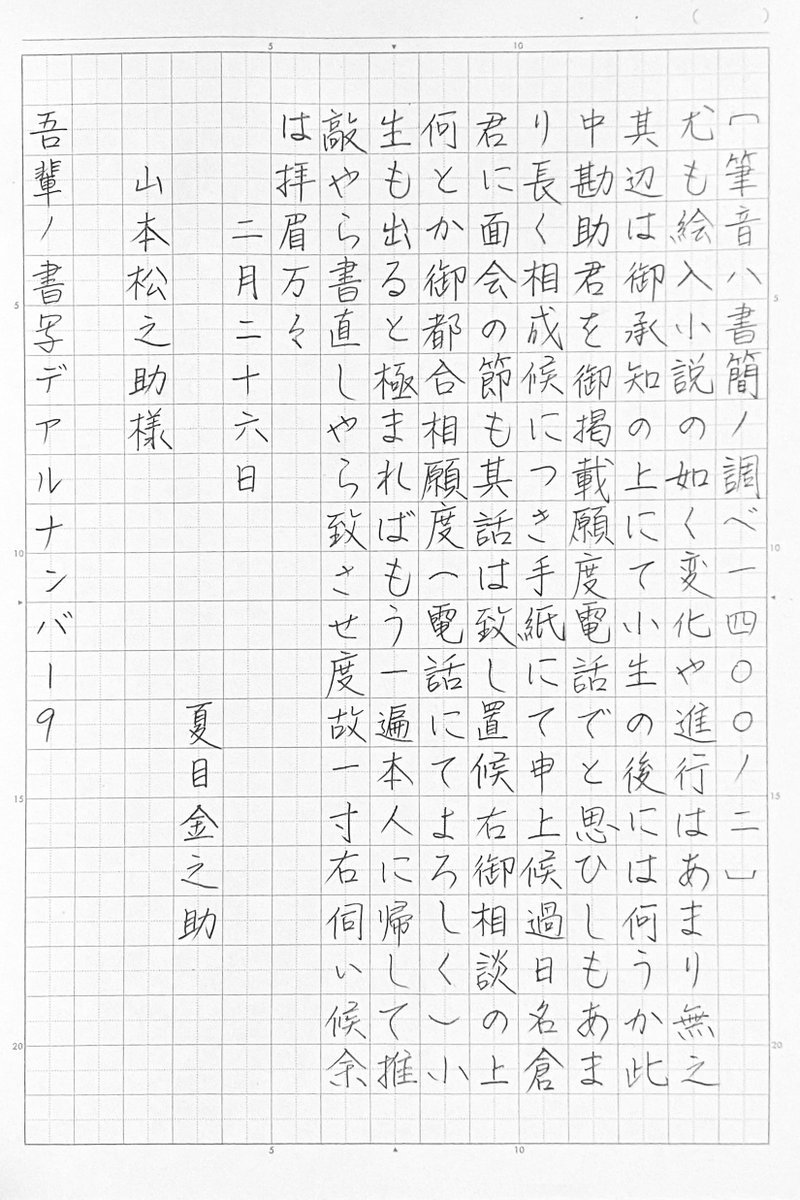 〔筆音ハ書簡ノ調べ一四〇〇ノ二〕
尤も絵入小説の如く変化や進行はあまり無之
其辺は御承知の上にて小生の後には何うか此
中勘助君を御掲載願度電話でと思ひしもあま
り長く相成候につき手紙にて申上候過日名倉
君に面会の節も其話は致し置候右御相談の上
何とか御都合相願度(電話にてよろしく)小
生も出ると極まればもう一遍本人に帰して推
敲やら書直しやら致させ度故一寸右伺い候余
は拝眉万々
二月二十六日
夏目金之助
山本松之助様
吾輩ノ書写デアルナンバー9
5
10
5
10
15
20
5
10
15
20
5
10